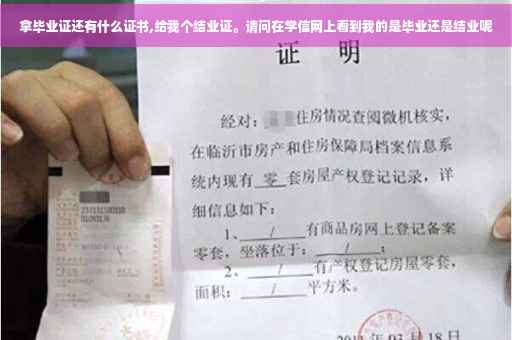 拿毕业证还有什么证书,给我个结业证。请问在学信网上看到我的是毕业还是结业呢
证 明
经对:住房情况查阅微机核实,
在临沂市房产和住房保障局档案信息系
统内现有 零 套房屋产权登记记录，详
细信息如下：
1、 / 有商品房网上登记备案
零套，坐落位于： / ；
2、 / 有产权登记房屋零套，
面积： / 平方米。
03月18日